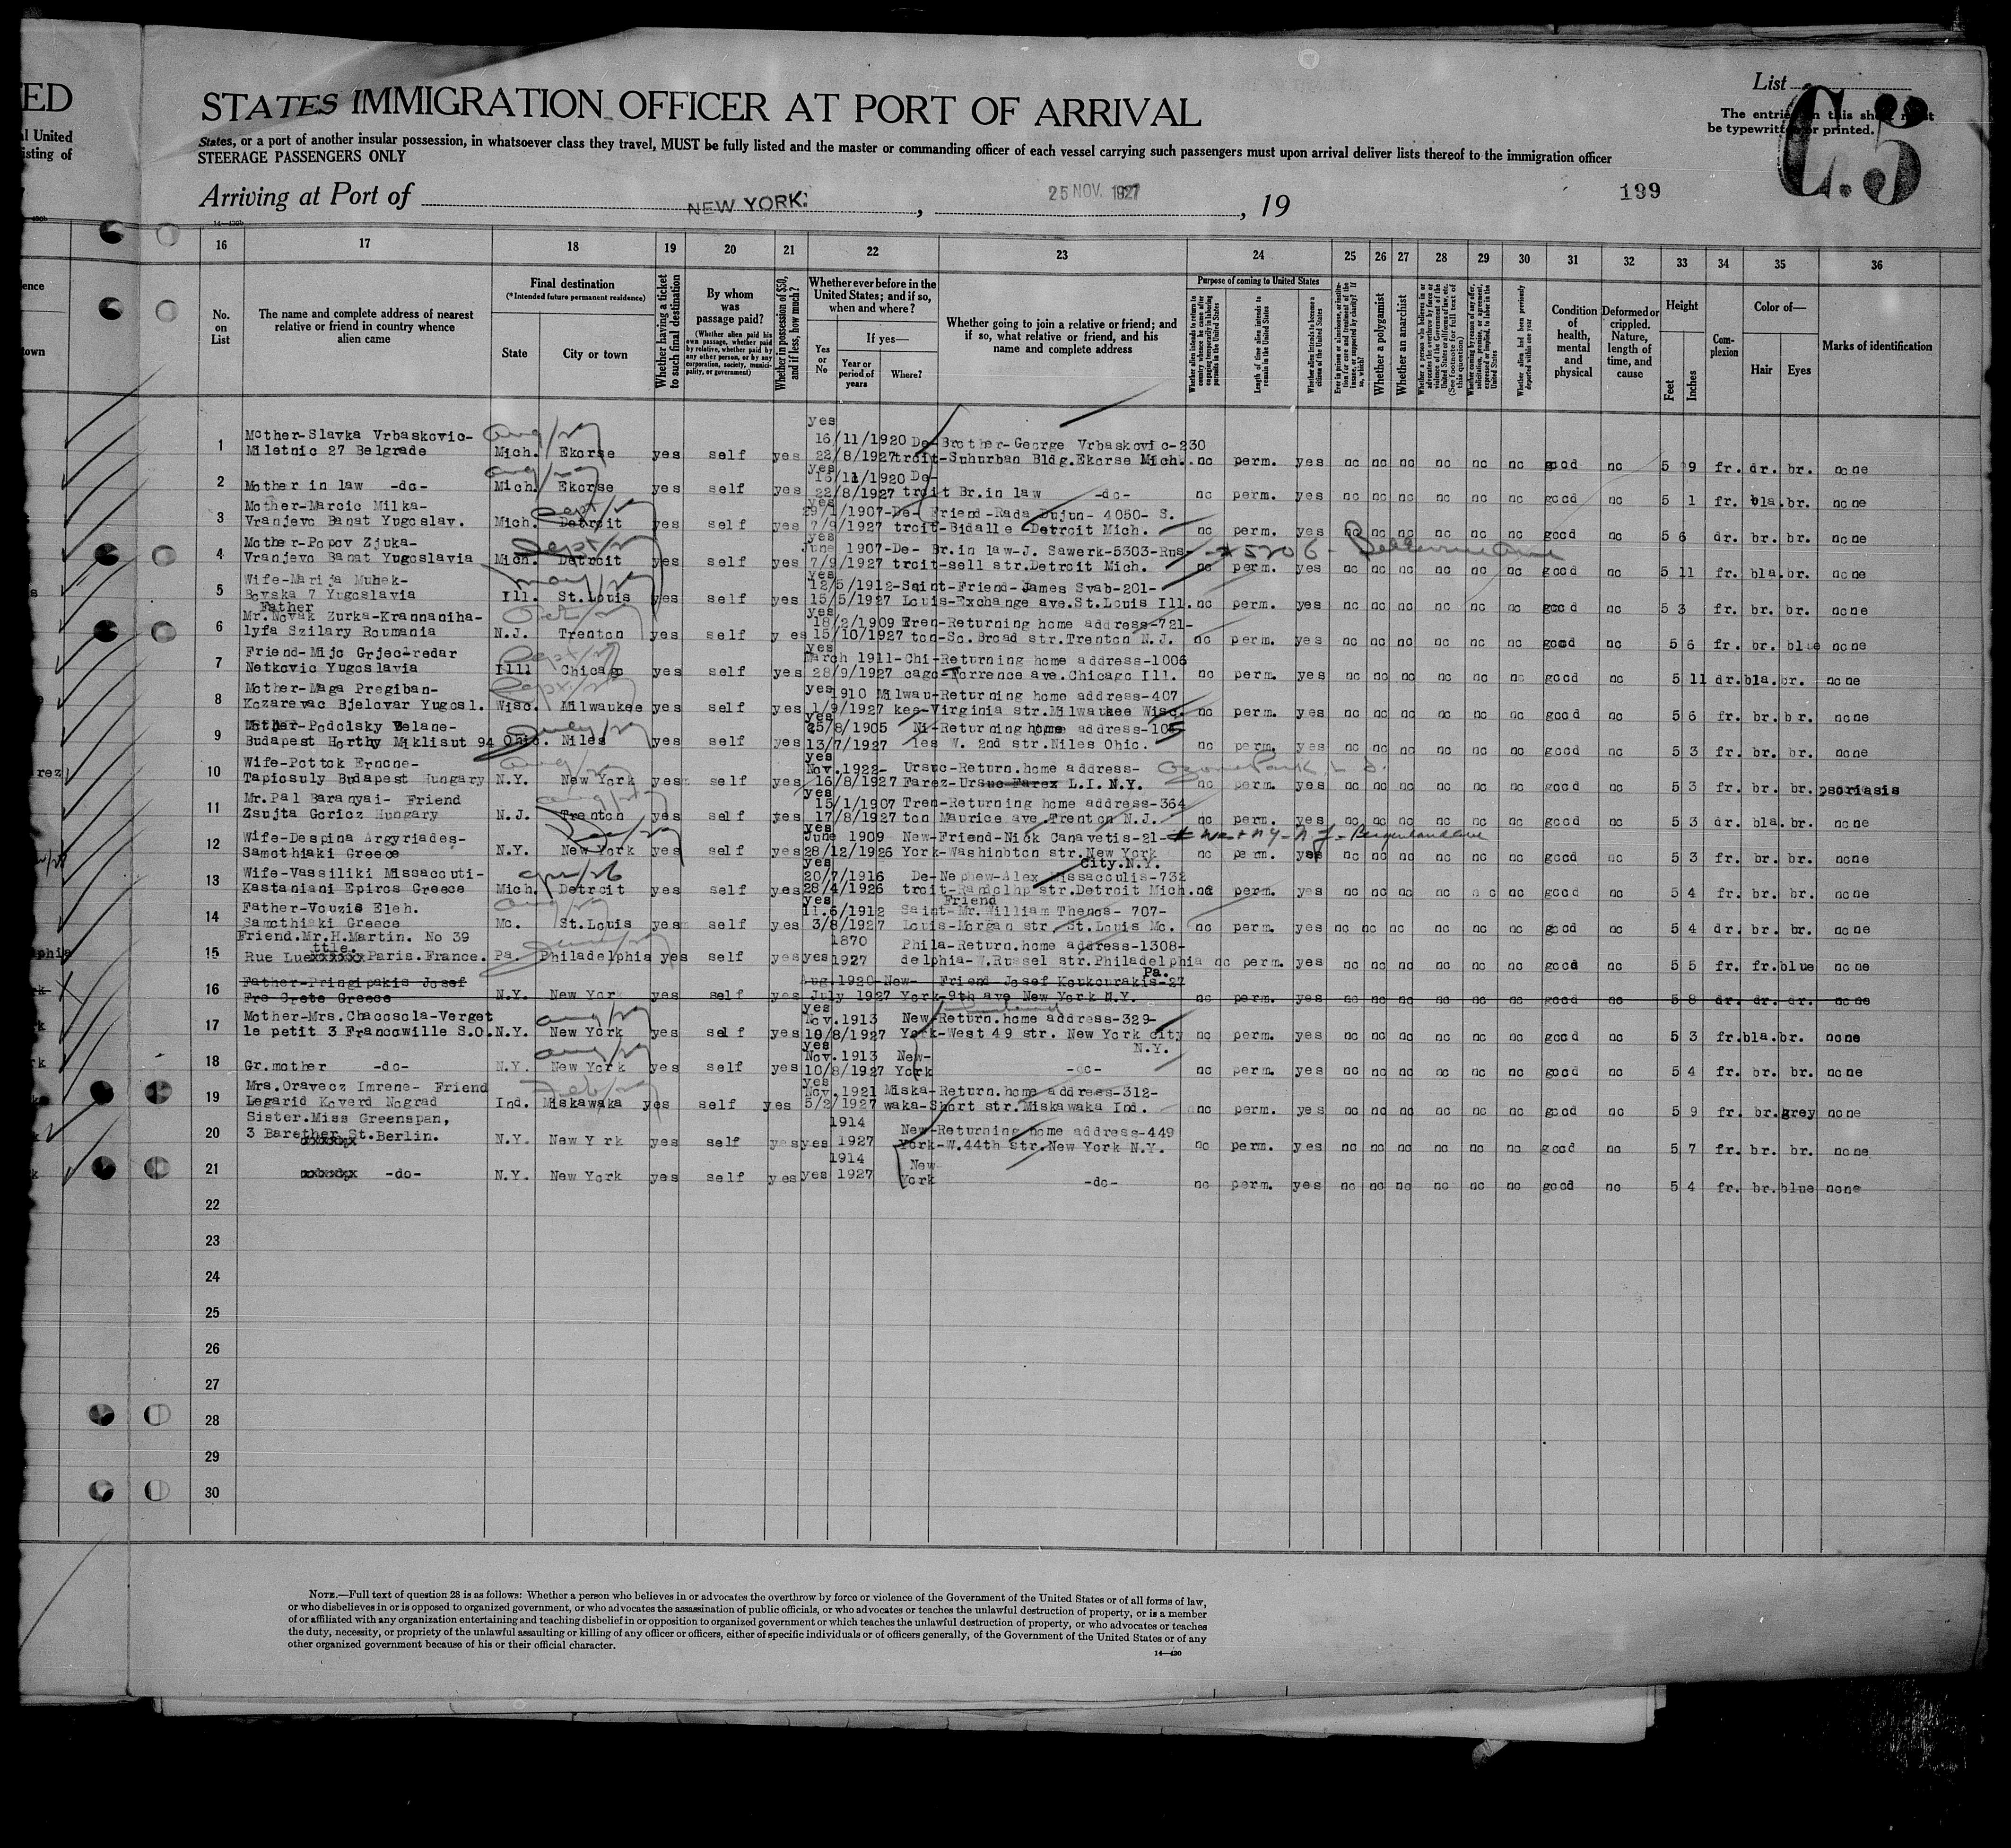 ED
al United
isting of
STATES IMMIGRATION OFFICER AT PORT OF ARRIVAL
States, or a port of another insular possession, in whatsoever class they travel, MUST be fully listed and the master or commanding officer of each vessel carrying such passengers must upon arrival deliver lists thereof to the immigration officer
STEERAGE PASSENGERS ONLY
List
C.5
The entries on this sheet must
be typewritten or printed.
Arriving at Port of NEW YORK: , 25 NOV. 1927 , 19
199
14—430b
16 17 18 19 20 21 22 23 24 25 26 27 28 29 30 31 32 33 34 35 36
No. on List
The name and complete address of nearest relative or friend in country whence alien came
Final destination
(*Intended future permanent residence)
State
City or town
Whether having a ticket to such final destination
By whom was passage paid?
(Whether alien paid his own passage, whether paid by relative, whether paid by any other person, or by any corporation, society, municipality, or government)
Whether in possession of $50, and if less, how much?
Whether ever before in the United States; and if so, when and where?
Yes or No
If yes—
Year or period of years
Where?
Whether going to join a relative or friend; and if so, what relative or friend, and his name and complete address
Purpose of coming to United States
Whether alien intends to return to country whence he came after engaging temporarily in laboring pursuits in the United States
Length of time alien intends to remain in the United States
Whether alien intends to become a citizen of the United States
Ever in prison or almshouse, or institution for care and treatment of the insane, or supported by charity? If so, which?
Whether a polygamist
Whether an anarchist
(See footnote for full text of this question)
Whether alien had been previously deported within one year
Condition of health, mental and physical
Deformed or crippled. Nature, length of time, and cause
Height
Feet
Inches
Complexion
Color of—
Hair
Eyes
Marks of identification
1 Mother-Slavka Vrbaskovic- Miletnic 27 Belgrade Mich. Ekorse yes self yes yes 16/11/1920 22/8/1927 De-troit- Brother-George Vrbaskovic-230 Suhurban Bldg.Ekorse Mich. no perm. yes no no no no no no good no 5 9 fr. dr. br. none
2 Mother in law -do- Mich. Ekorse yes self yes yes 16/11/1920 22/8/1927 De-troit Br.in law -do- no perm. yes no no no no no no good no 5 1 fr. bla. br. none
3 Mother-Marcic Milka- Vranjevo Banat Yugoslav. Mich. Detroit yes self yes yes 29/1/1907 7/9/1927 De-troit- Friend-Rada Dujun- 4050- S. Bidalle Detroit Mich. no perm. yes no no no no no no good no 5 6 dr. br. br. none
4 Mother-Popov Zjuka- Vranjevo Banat Yugoslavia Mich. Detroit yes self yes yes June 1907 7/9/1927 De-troit- Br.in law-J. Sawerk-5303-Russell str.Detroit Mich. no perm. yes no no no no no no good no 5 11 fr. bla. br. none
5 Wife-Marija Muhek- Bovska 7 Yugoslavia Ill. St.Louis yes self yes yes 12/5/1912 15/5/1927 Saint-Louis- Friend-James Svab-201- Exchange ave.St.Louis Ill. no perm. yes no no no no no no good no 5 3 fr. br. br. none
6 Father Mr.Novak Zurka-Krannaniha- lyfa Szilary Roumania N.J. Trenton yes self yes yes 18/2/1909 15/10/1927 Tren-ton- Returning home address-721- So. Broad str.Trenton N.J. no perm. yes no no no no no no good no 5 6 fr. br. blue none
7 Friend-Mijo Grjec-redar Netkovic Yugoslavia Ill Chicago yes self yes yes March 1911 28/9/1927 Chi-cago- Returning home address-1006 Torrence ave.Chicago Ill. no perm. yes no no no no no no good no 5 11 dr. bla. br. none
8 Mother-Maga Pregiban- Kozarevac Bjelovar Yugosl. Wisc. Milwaukee yes self yes yes 1910 1/9/1927 Milwau-kee- Returning home address-407 Virginia str.Milwaukee Wisc. no perm. yes no no no no no no good no 5 6 fr. br. br. none
9 Mother-Podolsky Belane- Budapest Horthy Miklisut 94 Ohio. Niles yes self yes yes 25/8/1905 13/7/1927 Ni-les Returning home address-105 W. 2nd str.Niles Ohio. no perm. yes no no no no no no good no 5 3 fr. br. br. none
10 Wife-Pottok Ernone- Tapiosuly Budapest Hungary N.Y. New York yes self yes yes Nov.1922- 16/8/1927 Ursuc-Farez- Return.home address- Ursuc-Farex L.I. N.Y. Ozone Park, L.I. no perm. yes no no no no no no good no 5 3 fr. br. br. psoriasis
11 Mr.Pal Baranyai- Friend Zsujta Goricz Hungary N.J. Trenton yes self yes yes 15/1/1907 17/8/1927 Tren-ton Returning home address-364 Maurice ave.Trenton N.J. no perm. yes no no no no no no good no 5 3 dr. bla. br. none
12 Wife-Despina Argyriades- Samothiaki Greece N.Y. New York yes self yes yes June 1909 28/12/1926 New-York- Friend-Nick Canavetis-21- Washinbton str.New York City.N.Y. no perm. yes no no no no no no good no 5 3 fr. br. br. none
13 Wife-Vassiliki Missacouti- Kastaniani Epiros Greece Mich. Detroit yes self yes yes 20/7/1916 28/4/1926 De-troit- Nephew-Alex Missacoulis-732 Randolhp str.Detroit Mich. no perm. yes no no no no no no good no 5 4 fr. br. br. none
14 Father-Vouzis Eleh. Samothiaki Greece Mo. St.Louis yes self yes yes 11.6/1912 3/8/1927 Saint-Louis- Friend Mr.William Thenos- 707- Morgan str. St.Louis Mo. no perm. yes no no no no no no good no 5 4 dr. br. br. none
15 Friend.Mr.H.Martin. No 39 Rue Luexxxxxx ttle. Paris.France. Pa. Philadelphia yes self yes yes 1870 1927 Phila-delphia- Return.home address-1308- W.Russel str.Philadelphia Pa. no perm. yes no no no no no no good no 5 5 fr. fr. blue none
16 Father-Pringipakis Josef Fre Orete Greece N.Y. New York yes self yes Aug.1920 July 1927 New-York- Friend Josef Koukourakis-27 9th ave New York N.Y. no perm. yes no no no no no no good no 5 8 dr. dr. dr. none
17 Mother-Mrs.Chacosola-Verget le petit 3 Francowille S.O. N.Y. New York yes self yes yes Nov.1913 10/8/1927 New-York- Return.home address-329- West 49 str. New York city N.Y. no perm. yes no no no no no no good no 5 3 fr. bla. br. none
18 Gr.mother -do- N.Y. New York yes self yes yes Nov.1913 10/8/1927 New-York -do- no perm. yes no no no no no no good no 5 4 fr. br. br. none
19 Mrs.Oravecz Imrene- Friend Legarid Koverd Nograd Ind. Miskawaka yes self yes yes Nov.1921 5/2/1927 Miska-waka- Return.home address-312- Short str.Miskawaka Ind. no perm. yes no no no no no no good no 5 9 fr. br. grey none
20 Sister.Miss Greenspan, 3 Barether St.Berlin. N.Y. New Y rk yes self yes yes 1914 1927 New-York- Returning home address-449 W.44th str.New York N.Y. no perm. yes no no no no no no good no 5 7 fr. br. br. none
21 -do- N.Y. New York yes self yes yes 1914 1927 New York -do- no perm. yes no no no no no no good no 5 4 fr. br. blue none
22
23
24
25
26
27
28
29
30
NOTE.—Full text of question 28 is as follows: Whether a person who believes in or advocates the overthrow by force or violence of the Government of the United States or of all forms of law,
or who disbelieves in or is opposed to organized government, or who advocates the assassination of public officials, or who advocates or teaches the unlawful destruction of property, or is a member
of or affiliated with any organization entertaining and teaching disbelief in or opposition to organized government or which teaches the unlawful destruction of property, or who advocates or teaches
the duty, necessity, or propriety of the unlawful assaulting or killing of any officer or officers, either of specific individuals or of officers generally, of the Government of the United States or of any
other organized government because of his or their official character.
14—430